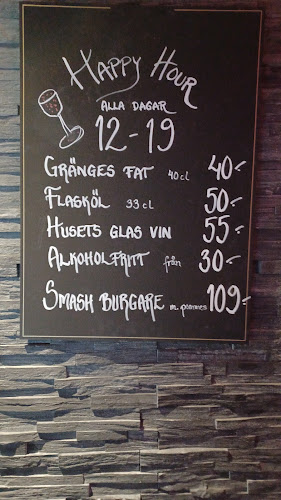 HAPPY HOUR
ALLA DAGAR
12-19
GRÄNGES FAT 40cl 40:-
FLASKÖL 33cl 50:-
HUSETS GLAS VIN 55:-
ALKOHOLFRITT från 30:-
SMASH BURGARE m. pommes 109:-